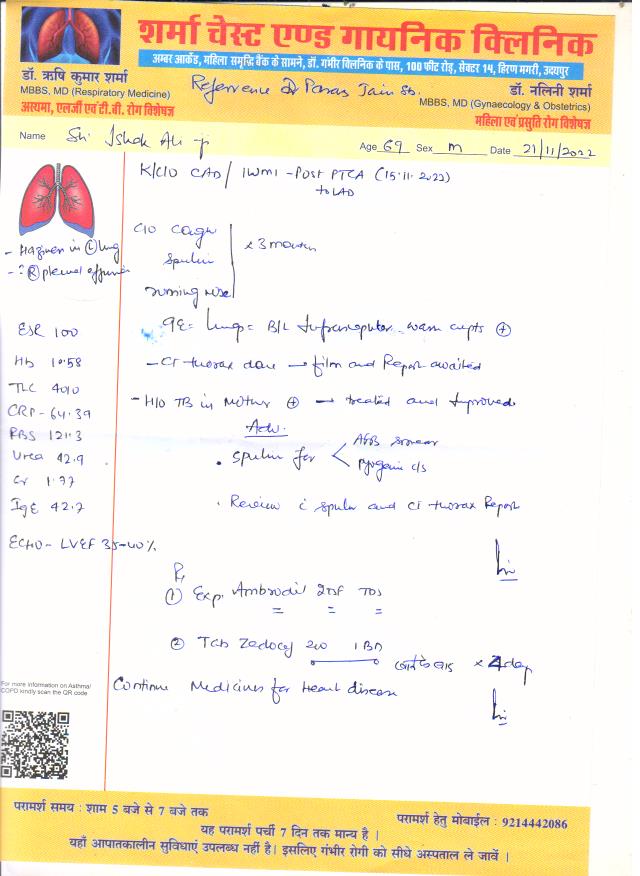 शर्मा चेस्ट एण्ड गायनिक क्लिनिक
अम्बर आर्केड, महिला समृद्धि बैंक के सामने, डॉ. गंभीर क्लिनिक के पास, 100 फीट रोड़, सेक्टर 14, हिरण मगरी, उदयपुर
डॉ. ऋषि कुमार शर्मा
MBBS, MD (Respiratory Medicine)
अस्थमा, एलर्जी एवं टी.बी. रोग विशेषज्ञ
Reference Dr Paras Jain Sb.
डॉ. नलिनी शर्मा
MBBS, MD (Gynaecology & Obstetrics)
महिला एवं प्रसुति रोग विशेषज्ञ
Name Sh. Ishak Ali ji
Age 69 Sex m Date 21/11/2022
K/C/O CAD / IWMI - Post PTCA (15.11.2022)
to LAD
C/O Cough
Sputum
running nose
x 3 months
- Haziness in (L) lung
- ? (R) pleural effusion
O/E = Lungs = B/L Infrascapular warm crepts (+)
- CT thorax done → film and Report awaited
- H/O TB in Mother (+) → treated and Improved
ESR 100
Hb 10.58
TLC 4010
CRP - 64.39
RBS 121.3
Urea 42.9
Cr 1.77
IgE 42.7
ECHO - LVEF 35-40%
Adv.
. Sputum for < AFB smear
Pyogenic c/s
. Review c sputum and CT thorax Report
Rx
(1) Exp. Ambrodil 2tsf TDS
(2) Tab Zedocef 200 1 BD
x 4 day
Continue Medicines for Heart disease
For more information on Asthma/
COPD kindly scan the QR code
परामर्श समय : शाम 5 बजे से 7 बजे तक
परामर्श हेतु मोबाईल : 9214442086
यह परामर्श पर्ची 7 दिन तक मान्य है ।
यहाँ आपातकालीन सुविधाएं उपलब्ध नहीं है। इसलिए गंभीर रोगी को सीधे अस्पताल ले जावें ।